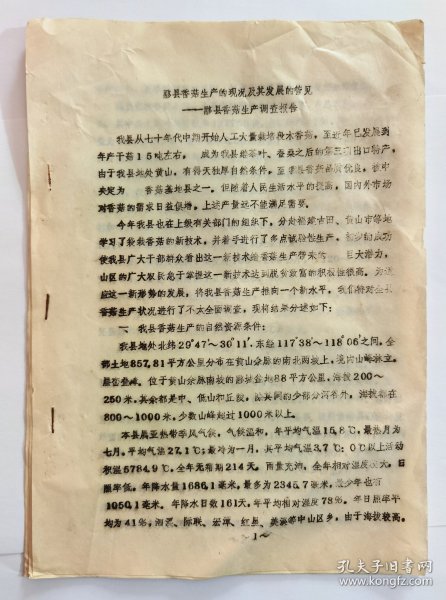 黟县香菇生产的现况及其发展的管见
——黟县香菇生产调查报告
我县从七十年代中期开始人工大量栽培段木香菇，至近年已发展到
年产干菇15吨左右，成为我县继茶叶、蚕桑之后的第三项出口特产，
由于我县地处黄山，有得天独厚自然条件，至黟县香菇品质优良，被中
央定为 香菇基地县之一。但随着人民生活水平的提高，国内外市场
对香菇的需求日益俱增，上述产量远不能满足需要。
今年我县也在上级有关部门的组织下，分赴福建古田、黄山市等地
学习了袋栽香菇的新技术，并着手进行了多点试验性生产。初步的成功
使我县广大干部群众看出这一新技术给香菇生产带来的 巨大潜力，
山区的广大农民急于掌握这一新技术达到脱贫致富的积极性很高。为适
应这一新形势的发展，将我县香菇生产推向一个新水平，我们特对全县
香菇生产状况进行了不大全面调查，现将结果分述如下：
一 我县香菇生产的自然资源条件：
我县地处北纬29°47′～30°11′，东经117°38′～118°06′之间，全
部土地857,81平方公里分布在黄山余脉的南北两坡上，境内山峰林立，
层峦叠嶂，位于黄山余脉南坡的黟城盆地88平方公里，海拔200～
250米，其余都是中、低山和丘陵，除其间的少部分河谷外，海拔都在
800～1000米，少数山峰超过1000米以上。
本县属亚热带季风气候，气候温和，年平均气温15,8℃，最热月为
七月，平均气温27,1℃；最冷为一月，其平均气温3,7℃；0℃以上活动
积温5784,9℃，全年无霜期214天。雨量充沛，全年相对湿度大，日
照率低。年降水量1686,1毫米，最多为2345,7毫米，最少年也有
1050,1毫米。年降水日数161天，年平均相对湿度78%。年日照率平
均为41%；泗溪、际联、宏潭、红星、美溪等中山区乡，由于海拔较高。
～1～
孔夫子旧书网
www.kongfz.com